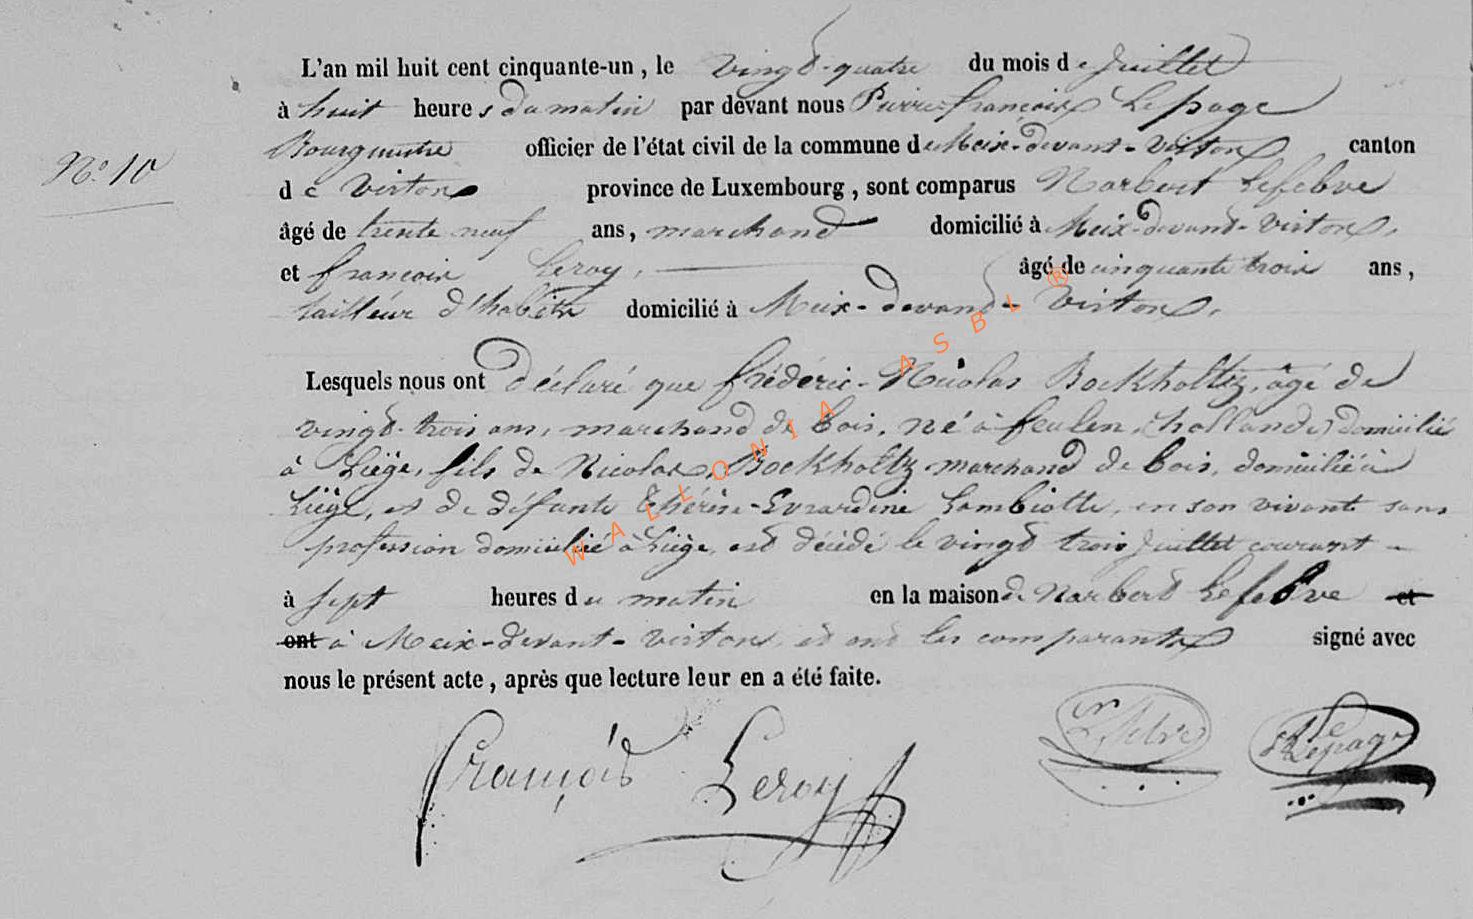 L'an mil huit cent cinquante-un, le vingt-quatre du mois de Juillet
à huit heures du matin par devant nous Pierre-françois Lepage
Nº 10
Bourgmestre officier de l'état civil de la commune de Meix-devant-Virton canton
de Virton province de Luxembourg, sont comparus Norbert Lefebve
âgé de trente neuf ans, marchand domicilié à Meix-devant-Virton,
et francois Leroy, âgé de cinquante trois ans,
tailleur d'habits domicilié à Meix-devant-Virton,
Lesquels nous ont déclaré que frédéric-Nicolas Bockholtz, âgé de
vingt-trois ans, marchand de bois, né à feulen, (hollande) domicilié
à Liège, fils de Nicolas, Bockholtz marchand de bois, domicilié à
Liège, et de défunte Thérèse-Evrardine Lambiotte, en son vivant sans
profession domicilié à Liège, est décédé le vingt trois Juillet courant
à sept heures du matin en la maison de Norbert Lefebve et
ont à Meix-devant-Virton, et ont les comparants signé avec
nous le présent acte, après que lecture leur en a été faite.
François Leroy Lefebve Lepage
WALLONIA ASBL ®